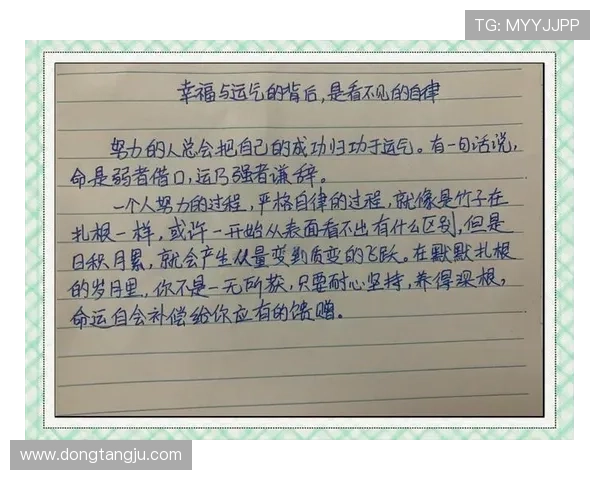 TG: MYYJJPP
幸福与运气的背后,是看不见的自律
努力的人总会把自己的成功归功于运气。有一句话说,
命是弱者借口,运乃强者谦辞。
一个人努力的过程,严格自律的过程,就像是竹子在
扎根一样,或许一开始从表面看不出有什么区别,但是
日积月累,就会产生从量变到质变的飞跃。在默默扎根
的岁月里,你不是一无所获,只要耐心坚持,养得深根,
命运自会补偿给你应有的馈赠。
www.dongtangju.com